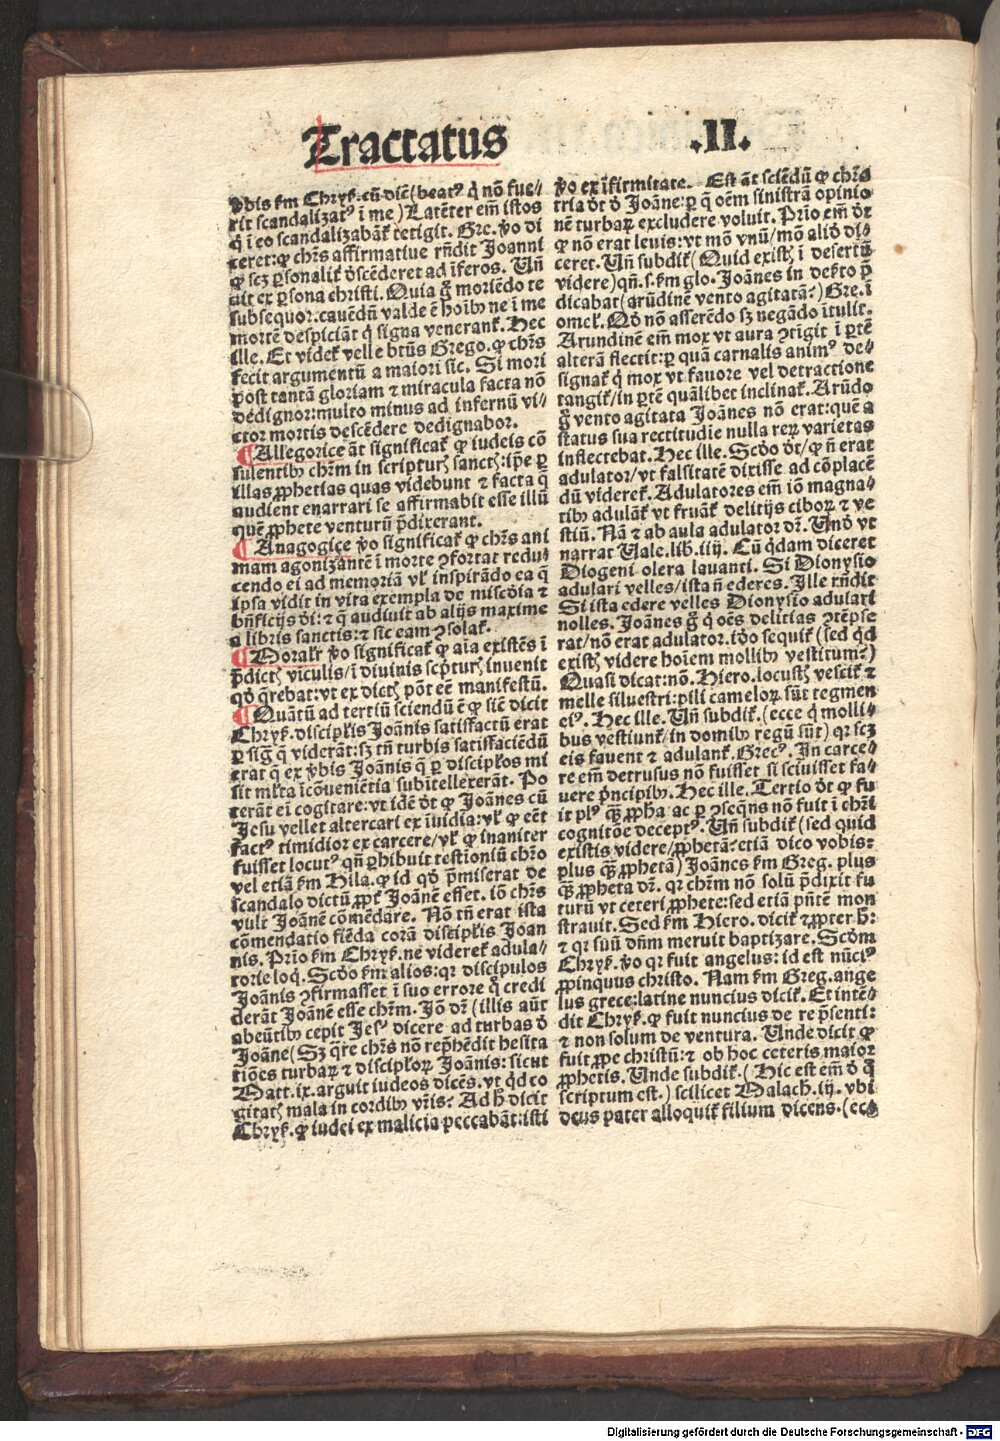 Tractatus .II.
v̄bis ẜm Chryꝭ. cū dic̄ (beatꝰ q̇ nō fue⸗
rit scandalizatꝰ i me) Latēter em̄ istos
q̇ i eo scandalizabāt̉ tetigit. Gre. v̊o di
ceret: ꝙ chr̄s affirmatiue rn̄dit Joanni
ꝙ scꝫ ꝑsonalit̉ d̓scēderet ad īferos. Un̄
ait ex ꝑsona christi. Quia g̊ moriēdo te
subsequor. cauēdū valde ē hoīb⁹ ne i me
mortē despiciāt q̇ signa venerant̉. Hec
ille. Et videt̉ velle btūs Grego. ꝙ chr̄s
fecit argumentū a maiori sic. Si mori
post tantā gloriam ⁊ miracula facta nō
dedignor: multo minus ad infernū vi⸗
ctor mortis descēdere dedignabor.
¶ Allegorice āt significat̉ ꝙ iudeis cō
sulentib⁹ chr̄m in scriptur̄ sanct̄: ip̄e ꝑ
illas ꝓphetias quas videbunt ⁊ facta q̄
audient enarrari se affirmabit esse illū
quē ꝓphete venturū p̄dixerant.
¶ Anagogice v̊o significat̉ ꝙ chr̄s ani
mam agonizantē i morte ꝯfortat redu⸗
cendo ei ad memoriā vl̉ inspirādo ea q̄
ipsa vidit in vita exempla de miscd̄ia ⁊
bn̄ficijs d̄i: ⁊ q̄ audiuit ab alijs maxime
a libris sanctis: ⁊ sic eam ꝯsolat̉.
¶ Moralr̉ v̊o significat̉ ꝙ aīa existēs i
p̄dict̄ viculis/ i diuinis scp̄tur̄ inuenit
qd̓ q̄rebat: vt ex dict̄ pōt eē manifestū.
¶ Quātū ad tertiū sciendū ē ꝙ sic̄ dicit
Chryꝭ. discipl̉is Joānis satisfactū erat
ꝑ sig̅ q̄ viderāt: sꝫ tn̄ turbis satisfaciēdū
erat q̄ ex v̄bis Joānis q̄ ꝑ discipl̉os mi
sit ml̉ta icōueniētia subītellexerāt. Po
terāt ei cogitare: vt idē d̓t ꝙ Joānes cū
Jesu vellet altercari ex iuidia: vl̉ ꝙ eēt
factꝰ timidior ex carcere/ vl̉ ꝙ inaniter
fuisset locutꝰ qn̄ ꝑhibuit testīoniū chr̄o
vel etiā ẜm Hila. ꝙ id qd̓ p̄miserat de
scandalo dictū ꝓpt̉ Joānē esset. iō chr̄s
vult Joānē cōmēdare. Nō tn̄ erat ista
cōmendatio fiēda corā discipl̉is Joan
nis. Prīo ẜm Chryꝭ. ne videret̉ adula⸗
torie loq̇. Scd̓o ẜm alios: qr discipulos
Joānis ꝯfirmasset i suo errore q̇ credi
derāt Joānē esse chr̄m. Jō dr̄ (illis aūt
abeūtib⁹ cepit Jesꝰ dicere ad turbas d̓
Joāne (Sꝫ q̄re chr̄s nō rep̄hēdit hesita
tiōes turbaꝝ ⁊ discipl̉oꝝ Joānis: sicut
Matt. ix. arguit iudeos dicēs. vt q̇d co
gitat̄ mala in cordib⁹ vr̄is? Ad h̓ dicit
Chryꝭ. ꝙ iudei ex malicia peccabāt: isti
v̊o ex ifirmitate. Est āt sciēdū ꝙ chr̄s
tria d̓t d̓ Joāne: ꝑ q̄ oēm sinistrā opinio
nē turbaꝝ excludere voluit. Prīo em̄ d̓t
ꝙ nō erat leuis: vt mō vnū/ mō aliō di⸗
ceret. Un̄ subdit̉ (Quid exist̄ i desertū
videre) qn̄. s. ẜm glo. Joānes in deẜto p̄
dicabat (arūdinē vento agitatā?) Gre. i
omel̉. Qd̓ nō asserēdo sꝫ negādo itulit.
Arundinē em̄ mox vt aura ꝯtigit i ꝑtē
alterā flectit: ꝑ quā carnalis animꝰ de⸗
signat̉ q̇ mox vt fauore vel detractione
tangit̉/ in ꝑtē quālibet inclinat̉. Arūdo
g̊ vento agitata Joānes nō erat: quē a
status sua rectitudie nulla reꝝ varietas
inflectebat. Hec ille. Scd̓o d̓t/ ꝙ n̄ erat
adulator/ vt falsitatē dixisse ad cōplacē
dū videret̉. Adulatores em̄ iō magna⸗
tib⁹ adulāt̉ vt fruāt̉ delitijs ciboꝝ ⁊ ve
stiū. Nā ⁊ ab aula adulator dr̄. Und̓ vt
narrat Uale. lib. iiij. Cū q̇dam diceret
Diogeni olera lauanti. Si Dionysio
adulari velles/ ista n̄ ederes. Ille rn̄dit
Si ista edere velles Dionysio adulari
nolles. Joānes g̊ q̇ oēs delitias ꝯtēpse
rat/ nō erat adulator. iō sequit̉ (sed q̇d
exist̄ videre hoīem mollib⁹ vestitum?)
Quasi dicat: nō. Hiero. locust̄ vescit̉ ⁊
melle siluestri: pili cameloꝝ sūt tegmen
eiꝰ. Hec ille. Un̄ subdit̉. (ecce q̇ molli⸗
bus vestiunt̉/ in domib⁹ regū sūt) qr scꝫ
eis fauent ⁊ adulant̉. Grecꝰ. In carce⸗
re em̄ detrusus nō fuisset si sciuisset fa⸗
uere p̄ncipib⁹. Hec ille. Tertio d̓t ꝙ fu
it plꝰ q̄ꝫ ꝓpha ac ꝑ ꝯseq̄ns nō fuit i chr̄i
cognitōe deceptꝰ. Un̄ subdit̉ (sed quid
existis videre/ ꝓphetā? etiā dico vobis:
plus q̄ꝫ ꝓphetā) Joānes ẜm Greg. plus
q̄ꝫ ꝓpheta dr̄. qr chr̄m nō solū p̄dixit fu
turū vt ceteri ꝓphete: sed etiā pn̄tē mon
strauit. Sed ẜm Hiero. dicit̉ ⁊ ꝓpter h̓:
⁊ qr suū dn̄m meruit baptizare. Scd̓m
Chryꝭ. v̊o qr fuit angelus: id est nūciꝰ
ꝓpinquus christo. Nam ẜm Greg. ange
lus grece: latine nuncius dicit̉. Et intē⸗
dit Chryꝭ. ꝙ fuit nuncius de re p̄senti:
⁊ non solum de ventura. Unde dicit ꝙ
fuit ꝓpe christū: ⁊ ob hoc ceteris maior
ꝓphetis. Unde subdit̉. (Hic est em̄ d̓ q̊
scriptum est.) scilicet Malach. iij. vbi
deus pater alloquit̉ filium dicens. (ec⸗
Digitalisierung gefördert durch die Deutsche Forschungsgemeinschaft - DFG